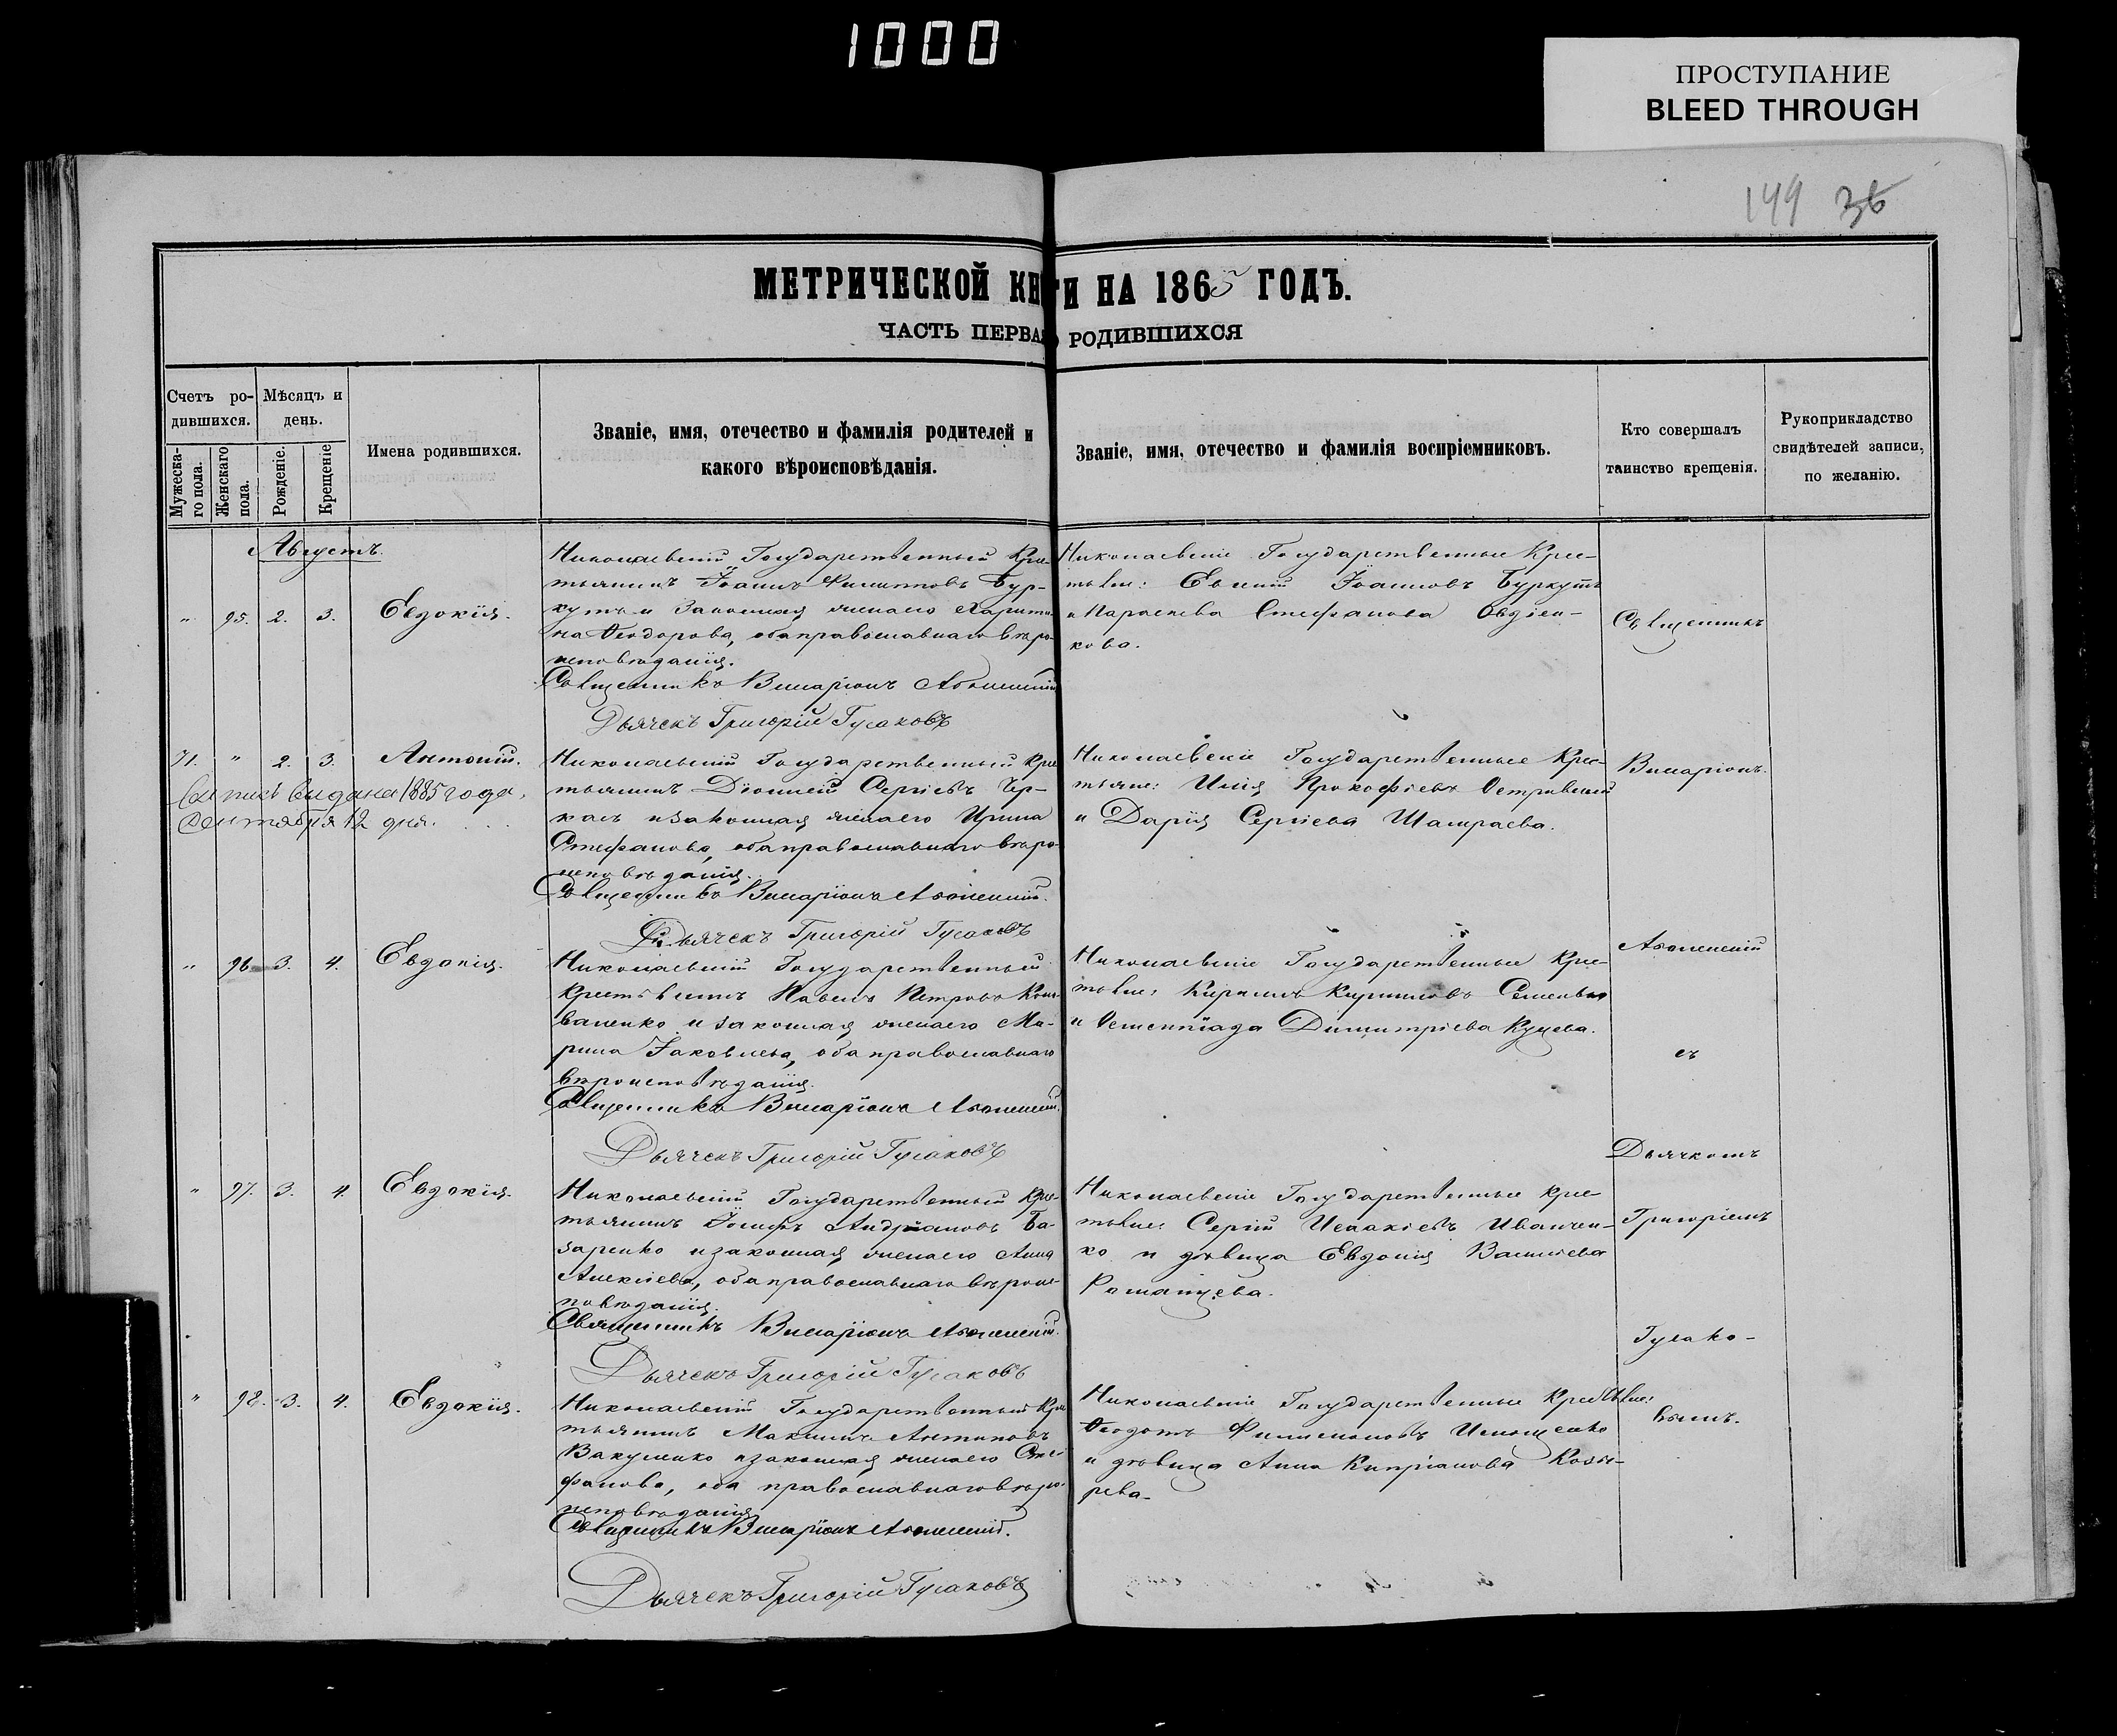 1000
ПРОСТУПАНИЕ
BLEED THROUGH
149 36
МЕТРИЧЕСКОЙ КНИГИ НА 1865 ГОДЪ.
ЧАСТЬ ПЕРВАЯ РОДИВШИХСЯ
Счетъ ро-
дившихся.
Мѣсяцъ и
день.
Мужеска-
го пола.
Женскаго
пола.
Рожденіе.
Крещеніе
Имена родившихся.
Званіе, имя, отечество и фамилія родителей и
какого вѣроисповѣданія.
Званіе, имя, отечество и фамилія воспріемниковъ.
Кто совершалъ
таинство крещенія.
Рукоприкладство
свидѣтелей записи,
по желанію.
Августъ.
" 95. 2. 3. Евдокія.
Николаевскій Государственный Кре-
стьянинъ Іоаннъ Филипповъ Бур-
кутъ и законная жена его Харити-
на Ѳеодорова, оба православнаго вѣро-
исповѣданія.
Священникъ Виларіонъ
Дьячекъ Григорій Гусаковъ
Николаевскіе Государственные Крес-
тьяне: Евсній Іоанновъ Буркутъ
и Параскева Стефанова Овдіен-
кова.
Священникъ
71. " 2. 3. Антоній.
выдана 1885 года,
Сентября 12 дня.
Николаевскій Государственный Кре
стьянинъ Діонисій Сергіевъ Чер-
касъ и законная жена его Ирина
Стефанова, оба православнаго вѣро-
исповѣданія.
Священникъ Виларіонъ
Дьячекъ Григорій Гусаковъ
Николаевскіе Государственные Крес-
тьяне: Илія Прокофіевъ Островскій
и Дарія Сергіева Шамраева.
Виларіонъ
" 96. 3. 4. Евдокія.
Николаевскій Государственный
Крестьянинъ Павелъ Петровъ Коно-
валенко и законная жена его Ма-
рина Іаковлева, оба православнаго
вѣроисповѣданія.
Священникъ Виларіонъ
Дьячекъ Григорій Гусаковъ
Николаевскіе Государственные Крес-
тьяне: Кириллъ Кирилловъ
и Димитріева Куцева.
съ
Дьячкомъ
" 97. 3. 4. Евдокія.
Николаевскій Государственный Крес-
тьянинъ Іосифъ Андріановъ Ба-
заренко и законная жена его Анна
Алексіева, оба православнаго вѣроис-
повѣданія.
Священникъ Виларіонъ
Дьячекъ Григорій Гусаковъ
Николаевскіе Государственные Крес-
тьяне: Сергій Исаакіевъ Иванчен-
ко и дѣвица Евдокія Василіева
Романцева.
Григоріемъ
Гусако-
вымъ.
" 98. 3. 4. Евдокія.
Николаевскій Государственный Кре
стьянинъ Максимъ Антиповъ
Вакуленко и законная жена его Сте-
фанова, оба православнаго вѣро-
исповѣданія
Священникъ Виларіонъ
Дьячекъ Григорій Гусаковъ
Николаевскіе Государственные Крестьяне:
Ѳеодотъ Филимоновъ
и дѣвица Анна Кипріанова Козы-
рева.